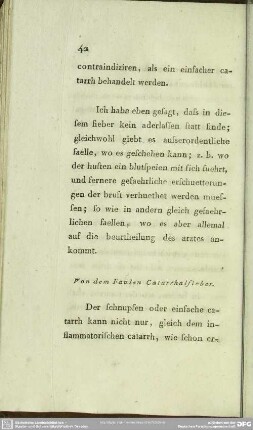 42
contraindiziren, als ein einfacher ca-
tarrh behandelt werden.
Ich habe eben geſagt, daſs in die-
ſem fieber kein aderlaſſen ſtatt finde;
gleichwohl giebt es auſserordentliche
faelle, wo es geſchehen kann; z. b. wo
der huſten ein blutſpeien mit ſich fuehrt,
und fernere gefaehrliche erſchuetterun-
gen der bruſt verhuethet werden mueſ-
ſen; ſo wie in andern gleich gefaehr-
lichen faellen, wo es aber allemal
auf die beurtheilung des arztes an-
kommt.
Von dem Faulen Catarrhalfieber.
Der ſchnupfen oder einfache ca-
tarrh kann nicht nur, gleich dem in-
flammatoriſchen catarrh, wie ſchon er-